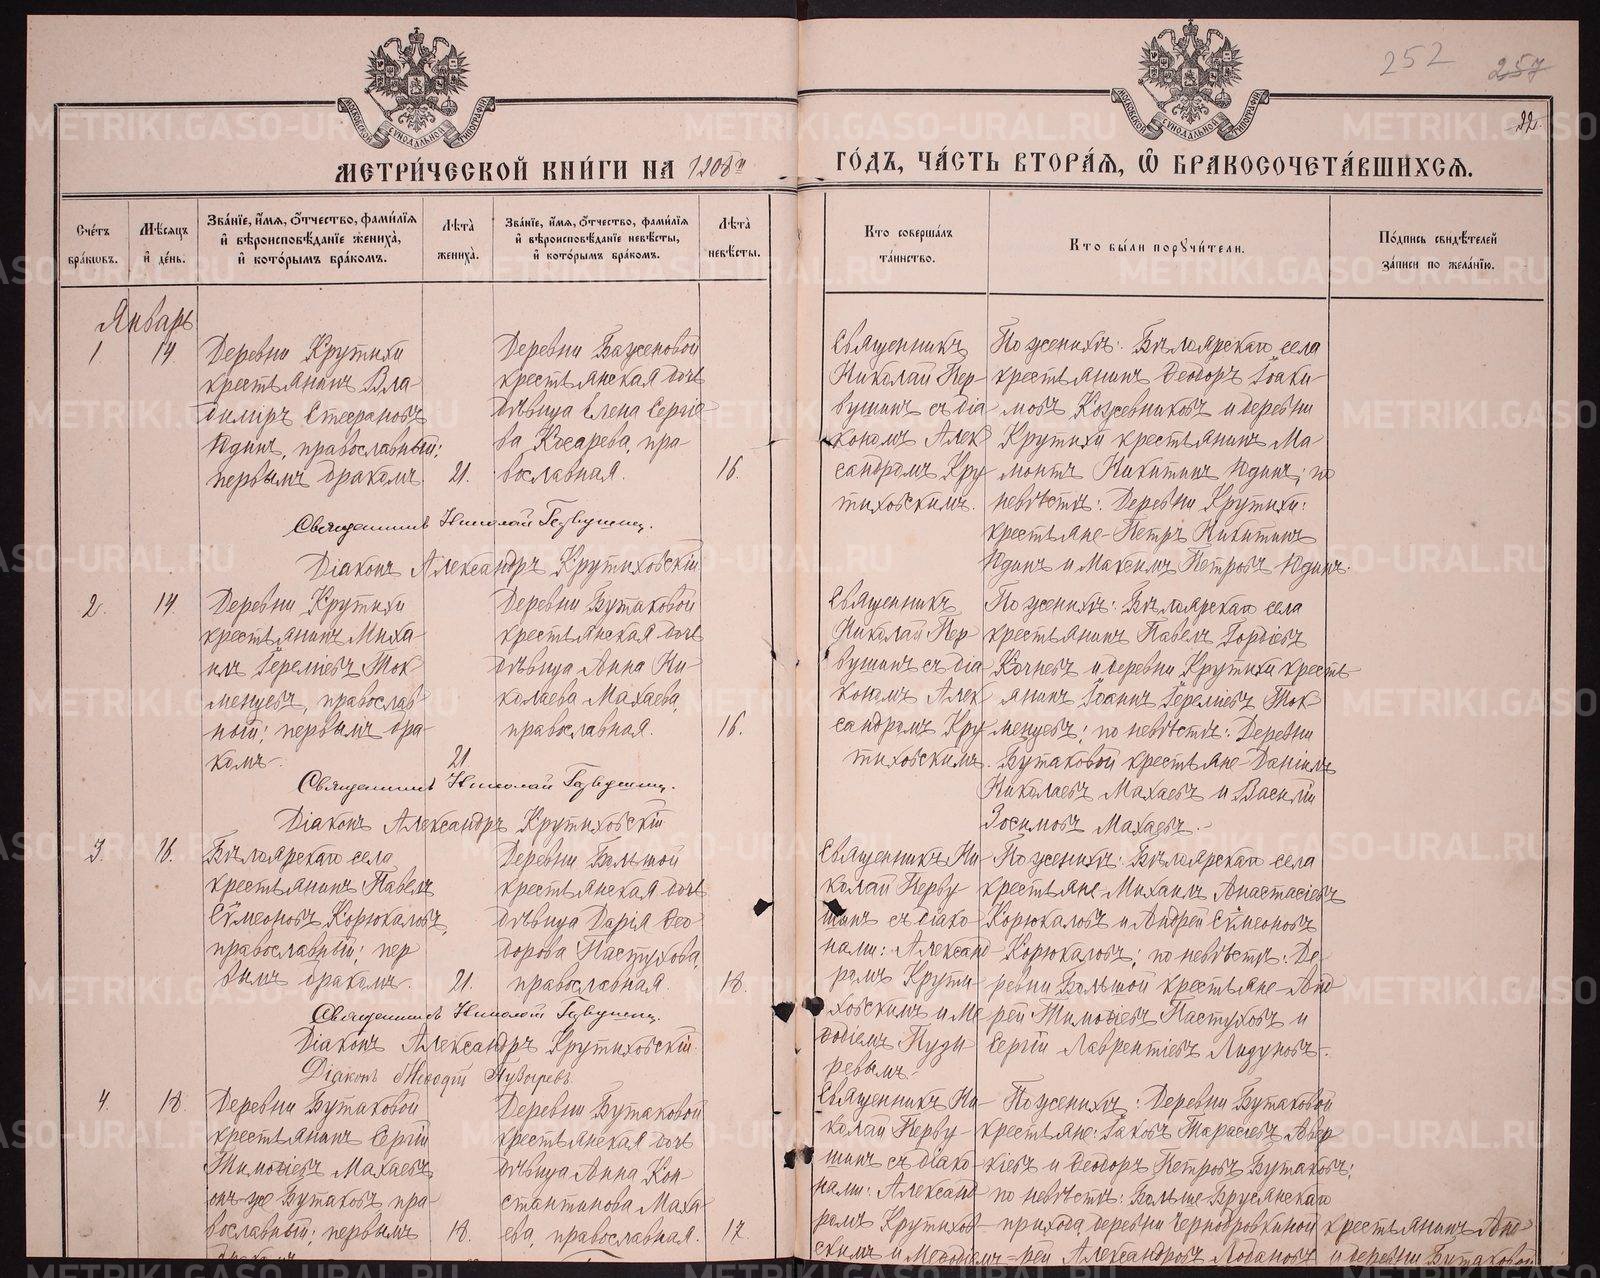 252
257
22.
МОСКОВСКОЙ СѴНОДАЛЬНОЙ ТИПОГРАФІИ
МОСКОВСКОЙ СѴНОДАЛЬНОЙ ТИПОГРАФІИ
МЕТРИ́ЧЕСКОЙ КНИ́ГИ НА 1908й
ГО́ДЪ, ЧА́СТЬ ВТОРА́Ѧ, Ѿ БРАКОСОЧЕТА́ВШИХСѦ.
Сче́тъ бра́кѡвъ.
Мѣ́сѧцъ и҆ де́нь.
Зва́нїе, и҆́мѧ, ѻ҆́тчество, фами́лїѧ и҆ вѣроисповѣ́данїе жениха̀, и҆ кото́рымъ бра́комъ.
Лѣта̀ жениха̀.
Зва́нїе, и҆́мѧ, ѻ҆́тчество, фами́лїѧ и҆ вѣроисповѣ́данїе невѣ́сты, и҆ кото́рымъ бра́комъ.
Лѣта̀ невѣ́сты.
Кто соверша́лъ та́инство.
Кто бы́ли порꙋчи́тели.
По́дпись свидѣ́телей за́писи по жела́нїю.
Январь
1
14
Деревни Крутихи
крестьянинъ Вла-
димiръ Стефановъ
Юдинъ, православный;
первымъ бракомъ.
21.
Деревни Баженовой
крестьянская дочь
дѣвица Елена Сергiе-
ва Косарева, пра-
вославная.
16.
Священникъ
Николай Пер-
вушинъ съ дiа
кономъ Алек
сандромъ Кру
тиховскимъ.
По женихѣ: Бѣлоярскаго села
крестьянинъ Ѳеодоръ Iоаки-
мовъ Кожевниковъ и деревни
Крутихи крестьянинъ Ма-
монтъ Никитинъ Юдинъ; по
невѣстѣ: Деревни Крутихи:
крестьяне Петръ Никитинъ
Юдинъ и Максимъ Петровъ Юдинъ.
Священникъ Николай Первушинъ.
Дiаконъ Александръ Крутиховскiй
2.
14.
Деревни Крутихи
крестьянинъ Миха-
илъ Iеремiевъ Ток
менцевъ, православ
ный; первымъ бра-
комъ.
21
Деревни Бутаковой
крестьянская дочь
дѣвица Анна Ни-
колаева Махаева,
православная.
16.
Священникъ
Николай Пер
вушинъ съ дiа
кономъ Алек
сандромъ Кру
тиховскимъ.
По женихѣ: Бѣлоярскаго села
крестьянинъ Павелъ Гордiевъ
Кочневъ и деревни Крутихи кресть
янинъ Iоаннъ Iеремiевъ Ток
менцевъ; по невѣстѣ: Деревни
Бутаковой крестьяне Данiилъ
Николаевъ Махаевъ и Василiй
Зосимовъ Махаевъ.
Священникъ Николай Первушинъ.
Дiаконъ Александръ Крутиховскiй
3.
16.
Бѣлоярскаго села
крестьянинъ Павелъ
Сѵмеоновъ Корюкаловъ,
православный; пер
вымъ бракомъ.
21.
Деревни Большой
крестьянская дочь
дѣвица Дарiя Ѳео-
дорова Пастухова,
православная.
18.
Священникъ Ни-
колай Перву
шинъ съ дiако-
нами: Александ
ромъ Крути-
ховскимъ и Ме
ѳодiемъ Пузы
ревымъ.
По женихѣ: Бѣлоярскаго села
крестьяне Михаилъ Анастасiевъ
Корюкаловъ и Андрей Сѵмеоновъ
Корюкаловъ; по невѣстѣ: Де-
ревни Большой крестьяне Анд
рей Тимоѳiевъ Пастуховъ и
Сергiй Лаврентiевъ
Священникъ Николай Первушинъ.
Дiаконъ Александръ Крутиховскiй.
Дiаконъ Меѳодiй Пузыревъ
4.
18.
Деревни Бутаковой
крестьянинъ Сергiй
Тимоѳiевъ Махаевъ
онъ же Бутаковъ, пра-
вославный; первымъ
бракомъ
18.
Деревни Бутаковой
крестьянская дочь
дѣвица Анна Кон
стантинова Маха
ева, православная.
17.
Священникъ Ни-
колай Перву-
шинъ съ дiако-
нами: Александ
ромъ Крутихов
скимъ и Меѳодiемъ
По женихѣ: Деревни Бутаковой
крестьяне: Iаковъ Тарасiевъ Авер
кiевъ и Ѳеодоръ Петровъ Бутаковъ;
по невѣстѣ: Больше-Брусянскаго
прихода, деревни Чернобровкиной крестьянинъ Анд
рей Александровъ Лобановъ и деревни Бутаковой
METRIKI.GASO-URAL.RU